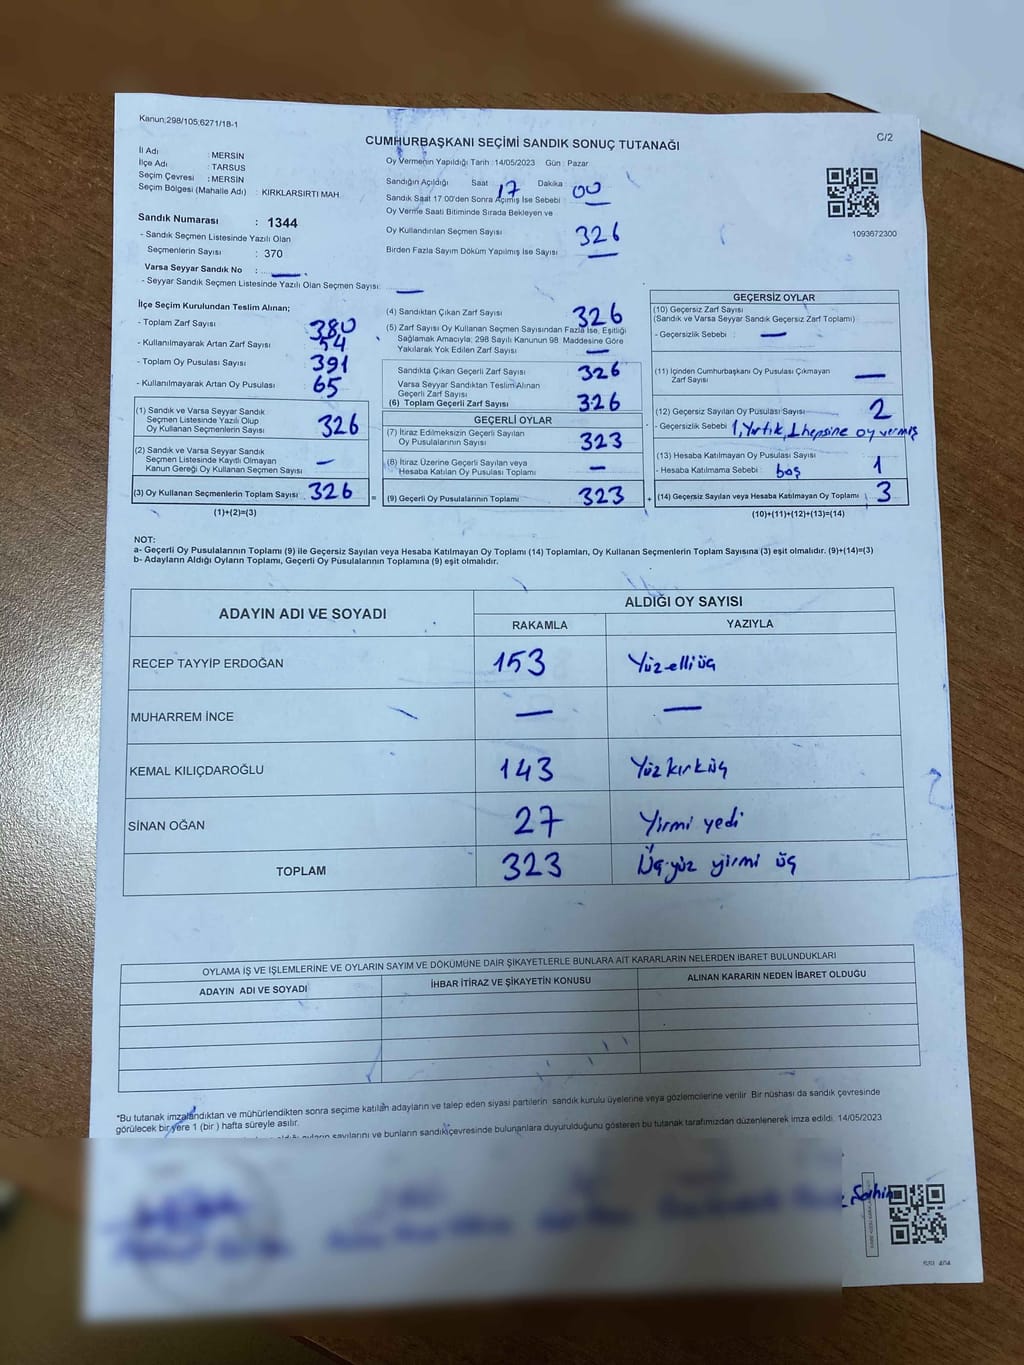 Kanun;298/105;6271/18-1
C/2
CUMHURBAŞKANI SEÇİMİ SANDIK SONUÇ TUTANAĞI
İl Adı : MERSİN
İlçe Adı : TARSUS
Seçim Çevresi : MERSİN
Seçim Bölgesi (Mahalle Adı) : KIRKLARSIRTI MAH.
Sandık Numarası : 1344
- Sandık Seçmen Listesinde Yazılı Olan
Seçmenlerin Sayısı : 370
Varsa Seyyar Sandık No : —
- Seyyar Sandık Seçmen Listesinde Yazılı Olan Seçmen Sayısı: —
Oy Vermenin Yapıldığı Tarih :14/05/2023 Gün : Pazar
Sandığın Açıldığı Saat 17 Dakika 00
Sandık Saat 17.00'den Sonra Açılmış İse Sebebi : —
Oy Verme Saati Bitiminde Sırada Bekleyen ve
Oy Kullandırılan Seçmen Sayısı 326
Birden Fazla Sayım Döküm Yapılmış İse Sayısı —
1093672300
İlçe Seçim Kurulundan Teslim Alınan;
- Toplam Zarf Sayısı 380
- Kullanılmayarak Artan Zarf Sayısı 54
- Toplam Oy Pusulası Sayısı 391
- Kullanılmayarak Artan Oy Pusulası 65
(1) Sandık ve Varsa Seyyar Sandık
Seçmen Listesinde Yazılı Olup
Oy Kullanan Seçmenlerin Sayısı 326
(2) Sandık ve Varsa Seyyar Sandık
Seçmen Listesinde Kayıtlı Olmayan
Kanun Gereği Oy Kullanan Seçmen Sayısı —
(3) Oy Kullanan Seçmenlerin Toplam Sayısı 326
(1)+(2)=(3)
=
(4) Sandıktan Çıkan Zarf Sayısı 326
(5) Zarf Sayısı Oy Kullanan Seçmen Sayısından Fazla İse, Eşitliği
Sağlamak Amacıyla; 298 Sayılı Kanunun 98. Maddesine Göre
Yakılarak Yok Edilen Zarf Sayısı —
Sandıkta Çıkan Geçerli Zarf Sayısı 326
Varsa Seyyar Sandıktan Teslim Alınan
Geçerli Zarf Sayısı
(6) Toplam Geçerli Zarf Sayısı 326
GEÇERLİ OYLAR
(7) İtiraz Edilmeksizin Geçerli Sayılan
Oy Pusulalarının Sayısı 323
(8) İtiraz Üzerine Geçerli Sayılan veya
Hesaba Katılan Oy Pusulası Toplamı —
(9) Geçerli Oy Pusulalarının Toplamı 323
+
GEÇERSİZ OYLAR
(10) Geçersiz Zarf Sayısı
(Sandık ve Varsa Seyyar Sandık Geçersiz Zarf Toplamı)
- Geçersizlik Sebebi : —
(11) İçinden Cumhurbaşkanı Oy Pusulası Çıkmayan
Zarf Sayısı —
(12) Geçersiz Sayılan Oy Pusulası Sayısı 2
- Geçersizlik Sebebi 1,Yırtık,1hepsine oy vermiş
(13) Hesaba Katılmayan Oy Pusulası Sayısı
- Hesaba Katılmama Sebebi : boş 1
(14) Geçersiz Sayılan veya Hesaba Katılmayan Oy Toplamı 3
(10)+(11)+(12)+(13)=(14)
NOT:
a- Geçerli Oy Pusulalarının Toplamı (9) ile Geçersiz Sayılan veya Hesaba Katılmayan Oy Toplamı (14) Toplamları, Oy Kullanan Seçmenlerin Toplam Sayısına (3) eşit olmalıdır. (9)+(14)=(3)
b- Adayların Aldığı Oyların Toplamı, Geçerli Oy Pusulalarının Toplamına (9) eşit olmalıdır.
ADAYIN ADI VE SOYADI
ALDIĞI OY SAYISI
RAKAMLA YAZIYLA
RECEP TAYYİP ERDOĞAN 153 Yüzelliüç
MUHARREM İNCE — —
KEMAL KILIÇDAROĞLU 143 Yüzkırküç
SİNAN OĞAN 27 Yirmi yedi
TOPLAM 323 Üçyüz yirmi üç
OYLAMA İŞ VE İŞLEMLERİNE VE OYLARIN SAYIM VE DÖKÜMÜNE DAİR ŞİKAYETLERLE BUNLARA AİT KARARLARIN NELERDEN İBARET BULUNDUKLARI
ADAYIN ADI VE SOYADI İHBAR İTİRAZ VE ŞİKAYETİN KONUSU ALINAN KARARIN NEDEN İBARET OLDUĞU
*Bu tutanak imzalandıktan ve mühürlendikten sonra seçime katılan adayların ve talep eden siyasi partilerin sandık kurulu üyelerine veya gözlemcilerine verilir. Bir nüshası da sandık çevresinde
görülecek bir yere 1 (bir ) hafta süreyle asılır.
oyların sayılarını ve bunların sandıkçevresinde bulunanlara duyurulduğunu gösteren bu tutanak tarafımızdan düzenlenerek imza edildi. 14/05/2023
Şahin